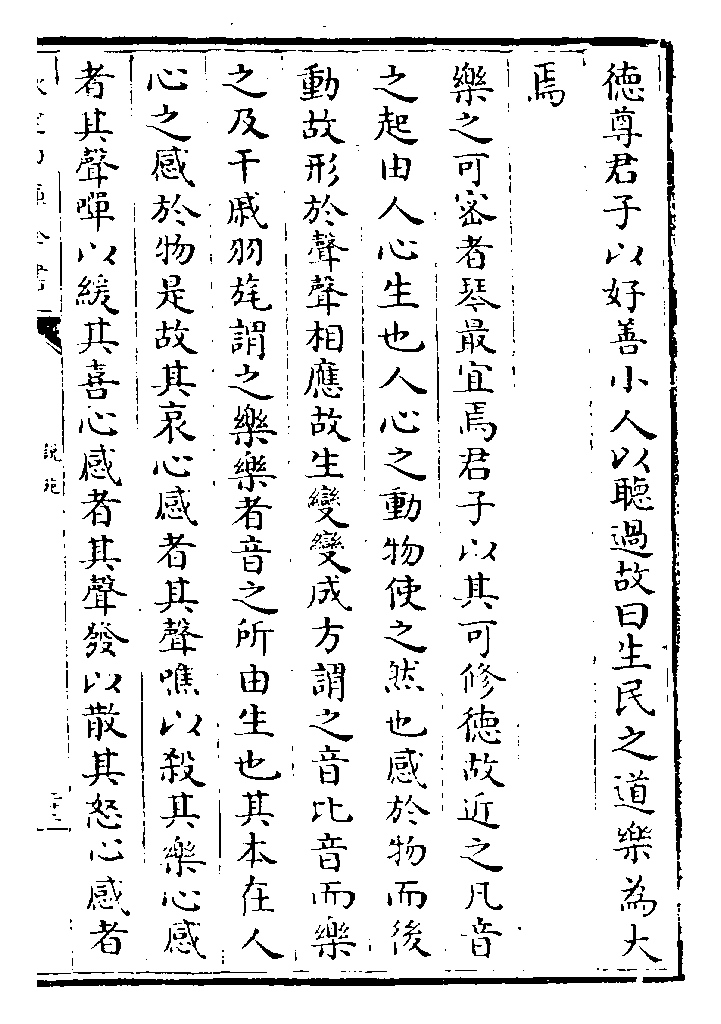 德尊君子以好善小人以聽過故曰生民之道樂為大
焉
樂之可密者琴最宜焉君子以其可修德故近之凡音
之起由人心生也人心之動物使之然也感於物而後
動故形於聲聲相應故生變變成方謂之音比音而樂
之及干戚羽旄謂之樂樂者音之所由生也其本在人
心之感於物是故其哀心感者其聲噍以殺其樂心感
者其聲嘽以緩其喜心感者其聲發以散其怒心感者
說苑